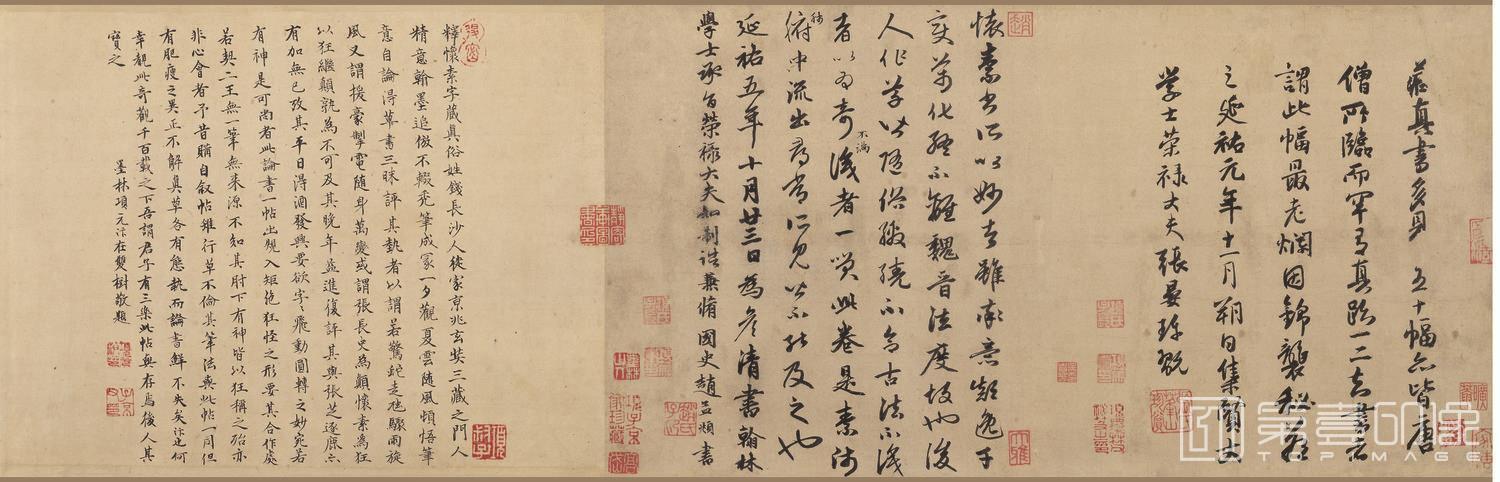 藏真書多見五十幅亦皆唐
僧所臨而罕有真跡一二
謂此幅最老爛因錦襲秘藏
之延祐元年十一月朔日集賢大
學士榮祿大夫張晏珍玩
懷素書所以妙者雖率意顛逸千
變萬化終不離魏晉法度故也後
人作草皆隨俗繳繞不合古法不識
者以為奇不滿識者一笑此卷是素師
肺腑中流出尋常所見皆不能及之也
延祐五年十月廿三日為彥清書翰林
學士承旨榮祿大夫知制誥兼脩國史趙孟頫書
釋懷素字藏真俗姓錢長沙人徙家京兆玄奘三藏之門人
精意翰墨追倣不輟禿筆成冢一夕觀夏雲隨風頓悟筆
意自論得草書三昧評其執者以謂若驚蛇走虺驟雨旋
風又謂援豪掣電隨身萬變或謂張長史為顛懷素為狂
以狂繼顛孰為不可及其晚年益進復評其與張芝逐鹿亦
有加無已攷其平日得酒發興要欲字字飛動圓轉之妙宛若
有神是可尚者此論書一帖出規入矩絕狂怪之形要其合作處
若契二王無一筆無來源不知其肘下有神皆以狂稱之殆亦
非心會者予昔購自叙帖雖行草不倫其筆法與此帖一同但
有肥瘦之異正不解真草各有態執而論書鮮不失矣汴迂何
幸覩此奇觀千百載之下吾謂君子有三樂此帖與存焉後人其
寶之
墨林項元汴在雙樹敬題
第壹印象
TOP IMAGE